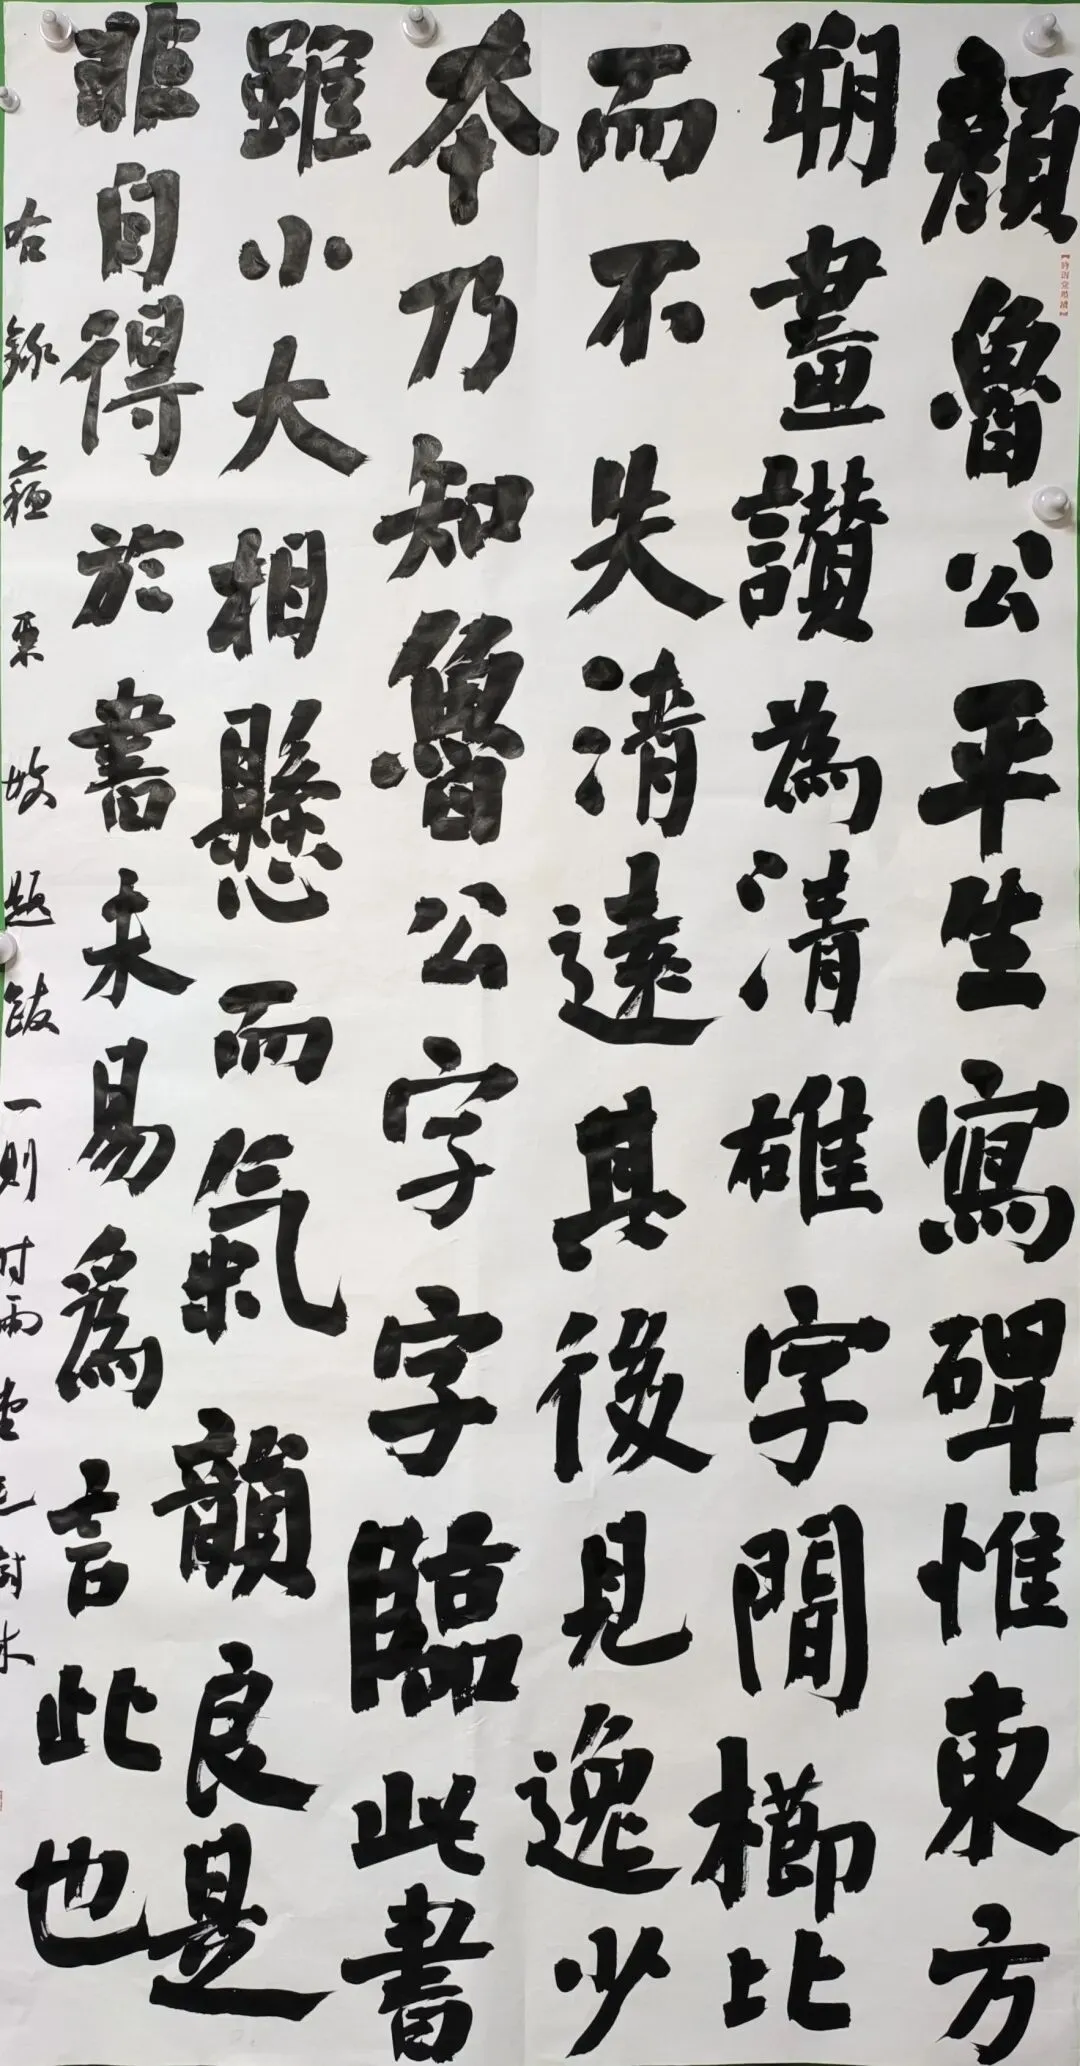 顏魯公平生寫碑惟東方
朔畫讚為清雄字間櫛比
而不失清遠其後見逸少
本乃知魯公字字臨此書
雖小大相懸而氣韻良是
非自得於書未易為言此也
右錄蘇東坡題跋一則時雨堂